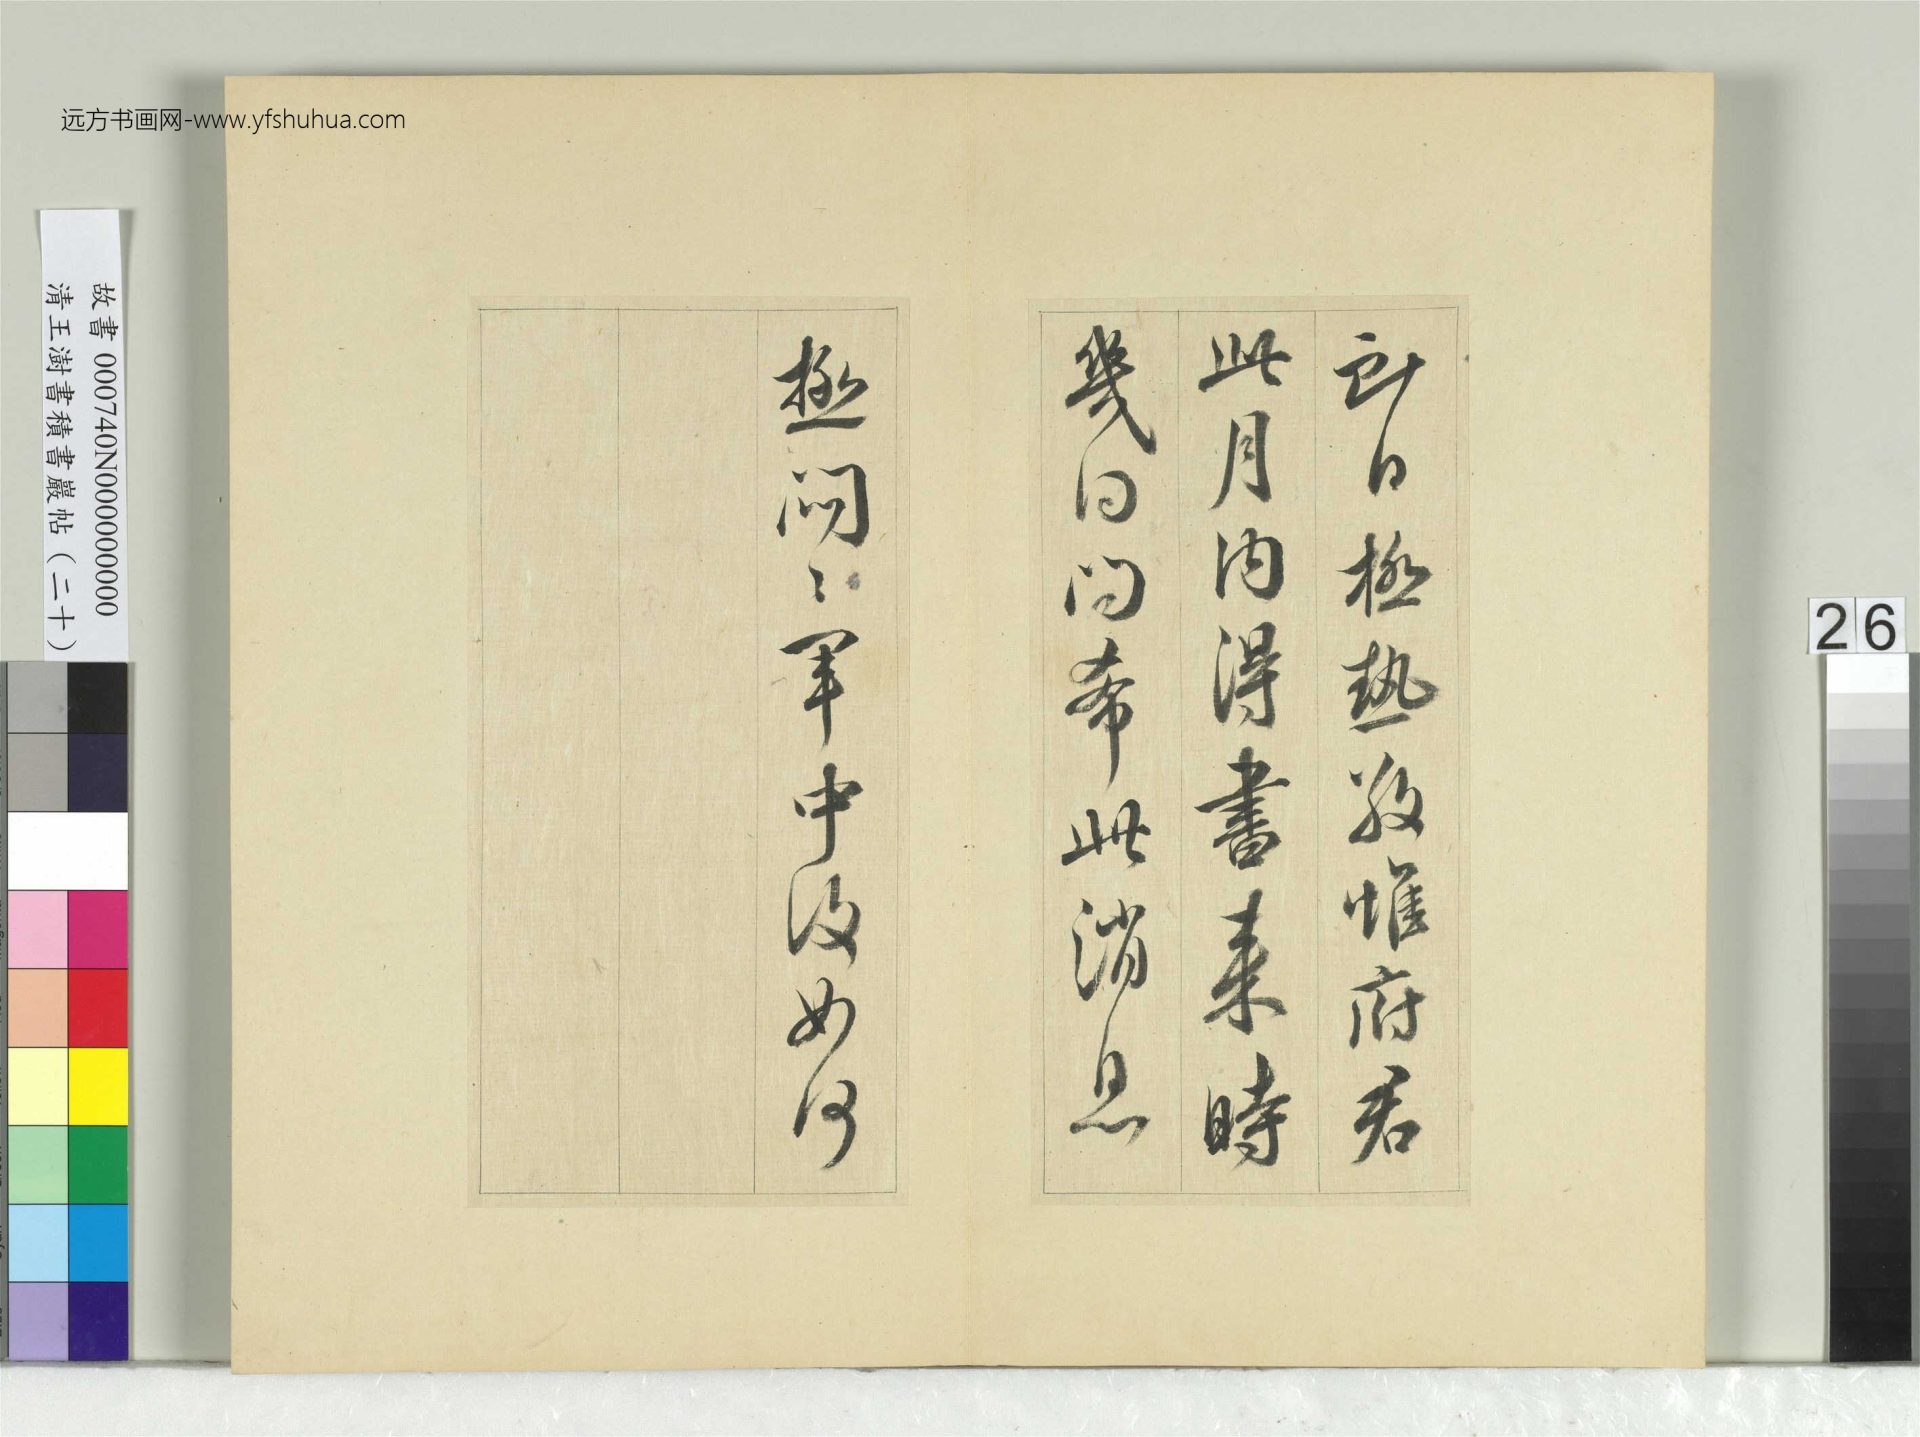 日極熱惟府君
此月內得書來時
幾日問希此消息
極悶〻軍中復如何
远方书画网-www.yfshuhua.com
故書 000740N000000000
清王澍書積書巖帖(二十)
26